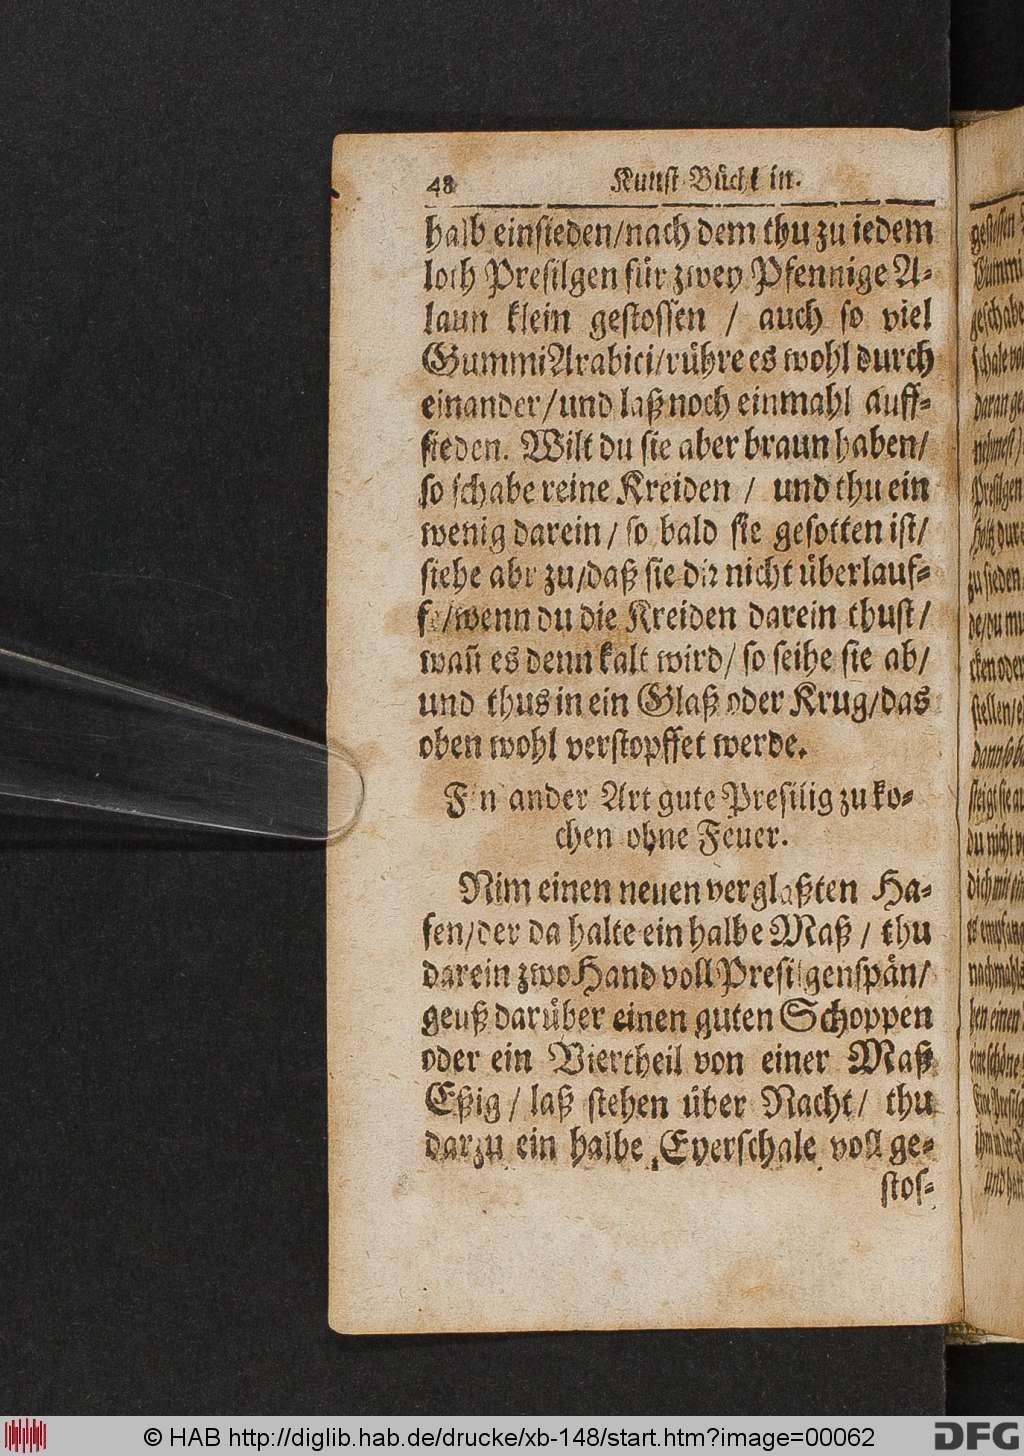 48 Kunst Büchl in.
halb einsieden/nach dem thu zu iedem
loth Presilgen für zwey Pfennige A⸗
laun klein gestossen / auch so viel
Gummi Arabici/rühre es wohl durch
einander/und laß noch einmahl auff⸗
sieden. Wilt du sie aber braun haben/
so schabe reine Kreiden / und thu ein
wenig darein/ so bald sie gesotten ist/
siehe abr zu/daß sie dir nicht überlauf⸗
fe/wenn du die Kreiden darein thust/
wañ es denn kalt wird/ so seihe sie ab/
und thus in ein Glaß oder Krug/das
oben wohl verstopffet werde.
Ein ander Art gute Presilig zu ko⸗
chen ohne Feuer.
Nim einen neuen verglaßten Ha⸗
fen/der da halte ein halbe Maß / thu
darein zwo Hand voll Presilgenspän/
geuß darüber einen guten Schoppen
oder ein Viertheil von einer Maß
Eßig / laß stehen über Nacht/ thu
darzu ein halbe Eyerschale voll ge⸗
stos⸗
© HAB http://diglib.hab.de/drucke/xb-148/start.htm?image=00062
DFG